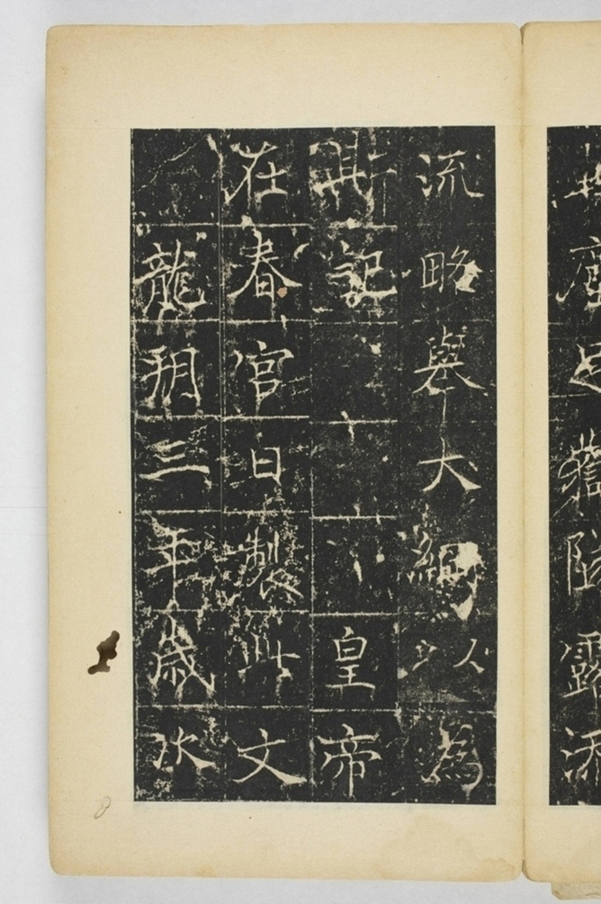 塵足嶽墜露添
流略舉大綱以為
斯記皇帝
在春宮日製此文
龍朔三年歲次